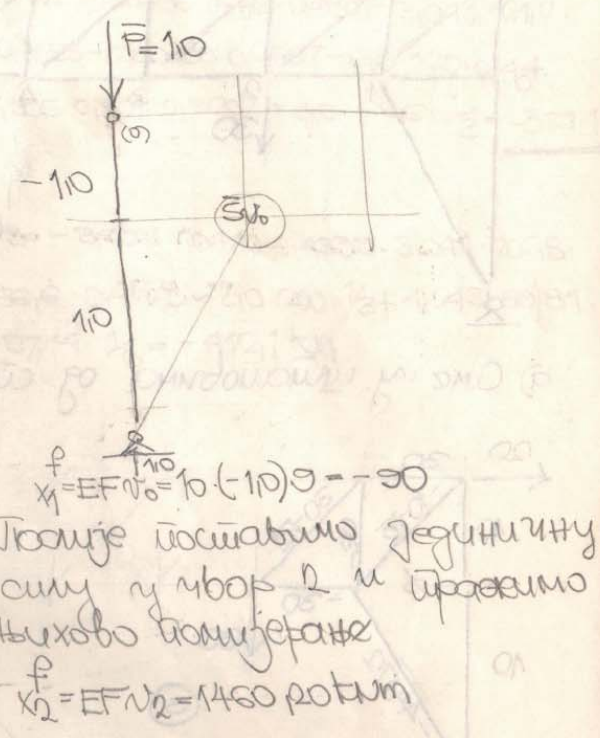 P̅=1,0
(9)
-1,0
S̅v₀
1,0
1,0
x₁ᶠ=EFv₀=10·(-1,0)9=-90
Послије поставимо јединичну
силу у чвор 2 и тражимо
њихово помијерање
x₂ᶠ=EFv₂=1460